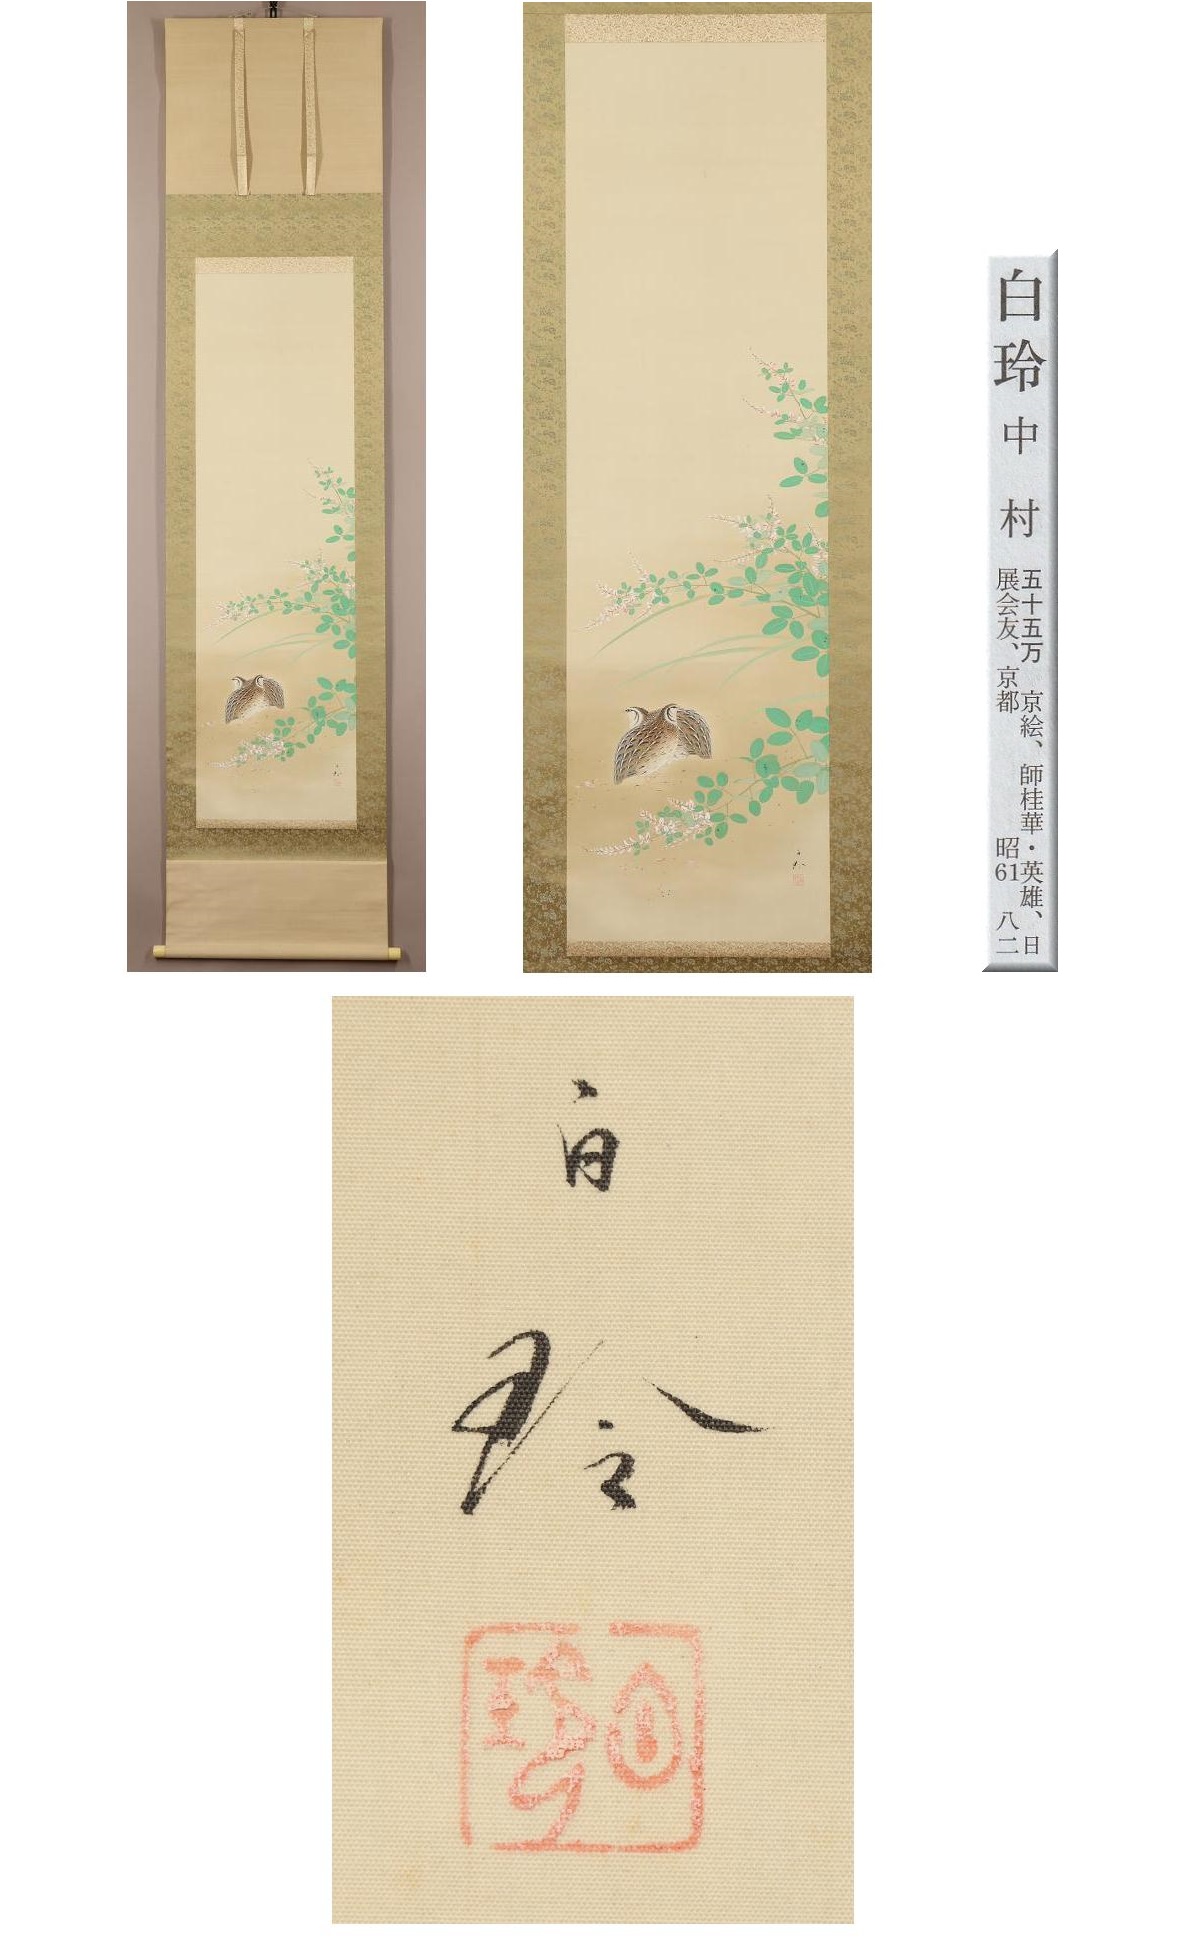 白玲 中村
五十五万 京絵、師桂華・英雄、日
展会友、京都 昭61 八二
白玲
白玲